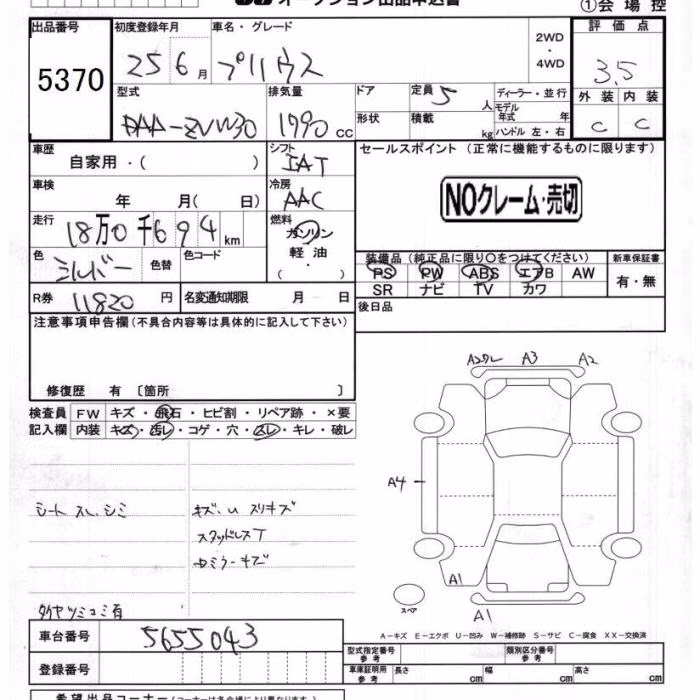 オークション出品申込書
①会場控
出品番号 5370
初度登録年月 25 6月
車名・グレード プリウス
2WD・4WD
評価点 3.5
外装 C 内装 C
型式 DAA-ZVW30
排気量 1790 cc
ドア
形状
定員 5人
積載 kg
ディーラー・並行
モデル年式 年
ハンドル 左・右
車歴 自家用・( )
シフト IAT
セールスポイント(正常に機能するものに限ります)
NOクレーム・売切
車検 年 月( 日)
冷房 AAC
走行 18万0千694km
燃料 ガソリン 軽油 ( ・ )
色 シルバー 色替
色コード
装備品(純正品に限り○をつけてください)
PS PW ABS エアB AW
SR ナビ TV カワ
新車保証書 有・無
R券 11820円
名変通知期限 月 日
後日品
注意事項申告欄(不具合内容等は具体的に記入して下さい)
修復歴 有 〔箇所 〕
検査員記入欄
FW キズ・飛石・ヒビ割・リペア跡・×要
内装 キズ・汚レ・コゲ・穴・スレ・キレ・破レ
A2クレ A3 A2
A4
A1
A1
スペア
シート スレ、シミ
キズ、U スリキズ
スタッドレスT
ミラーキズ
タイヤツミコミ有
A-キズ E-エクボ U-凹み W-補修跡 S-サビ C-腐食 XX-交換済
車台番号 5655043
型式指定番号 参考
類別区分番号 参考
登録番号
車庫証明用 参考 長さ cm 幅 cm 高さ cm
希望出品コーナー(コーナーは各会場により異なります)